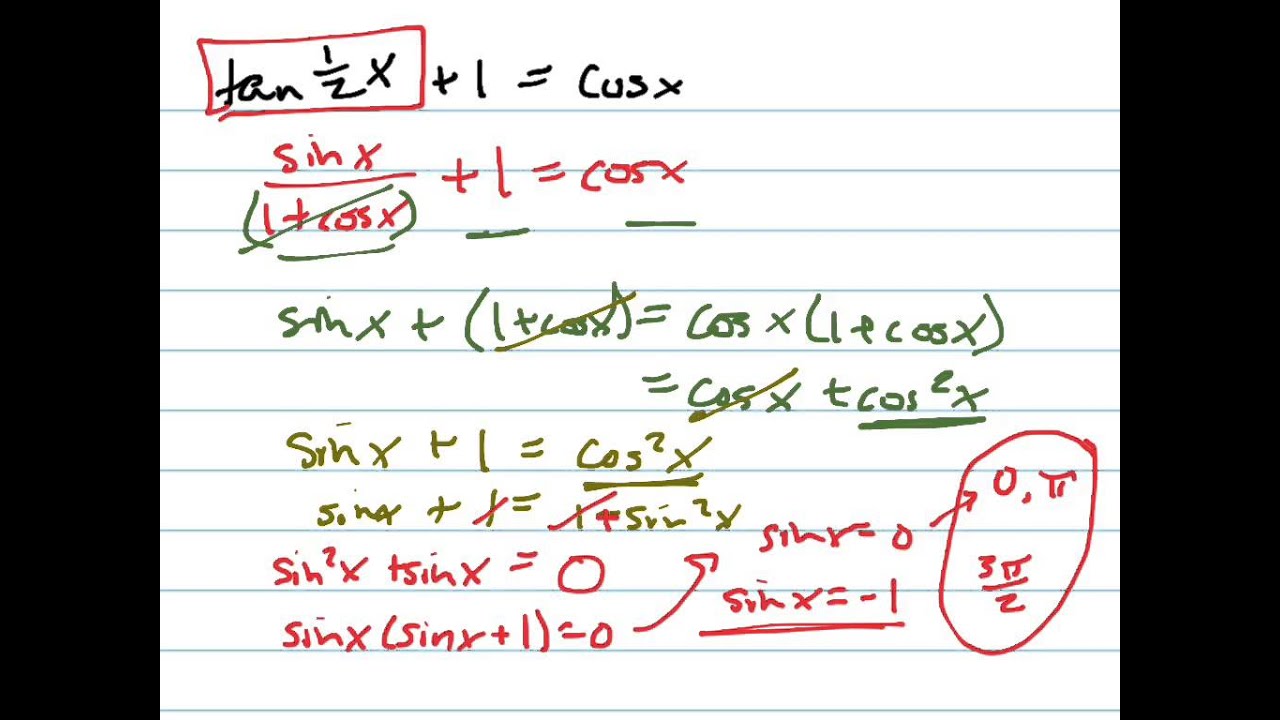 tan ½x + 1 = cosx
sinx/(1+cosx) + 1 = cosx
sinx + (1+cosx) = cosx(1+cosx)
= cosx + cos²x
sinx + 1 = cos²x
sinx + 1 = 1 - sin²x
sin²x + sinx = 0
sinx(sinx+1)=0
sinx=0
sinx=-1
0, π
3π/2